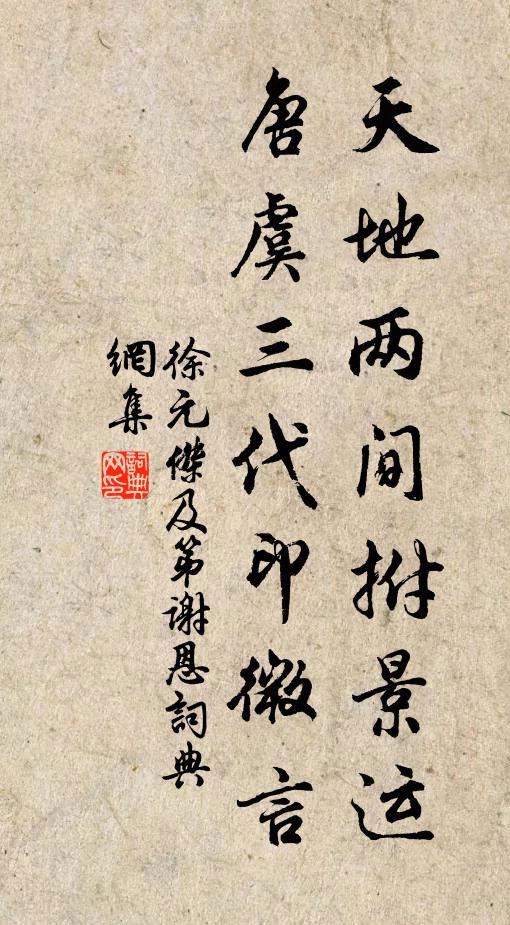 天地两间拊景运
唐虞三代印微言
徐元傑及第谢恩詞典
網集
詞典網印